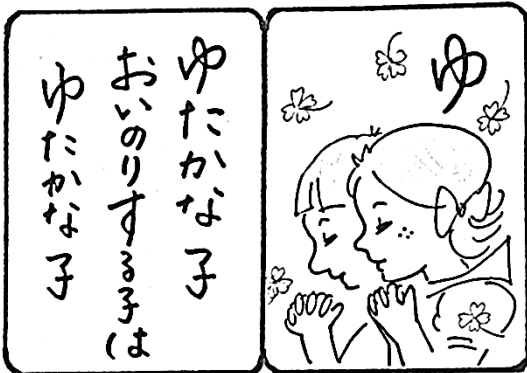 ゆ
ゆたかな子
おいのりする子は
ゆたかな子